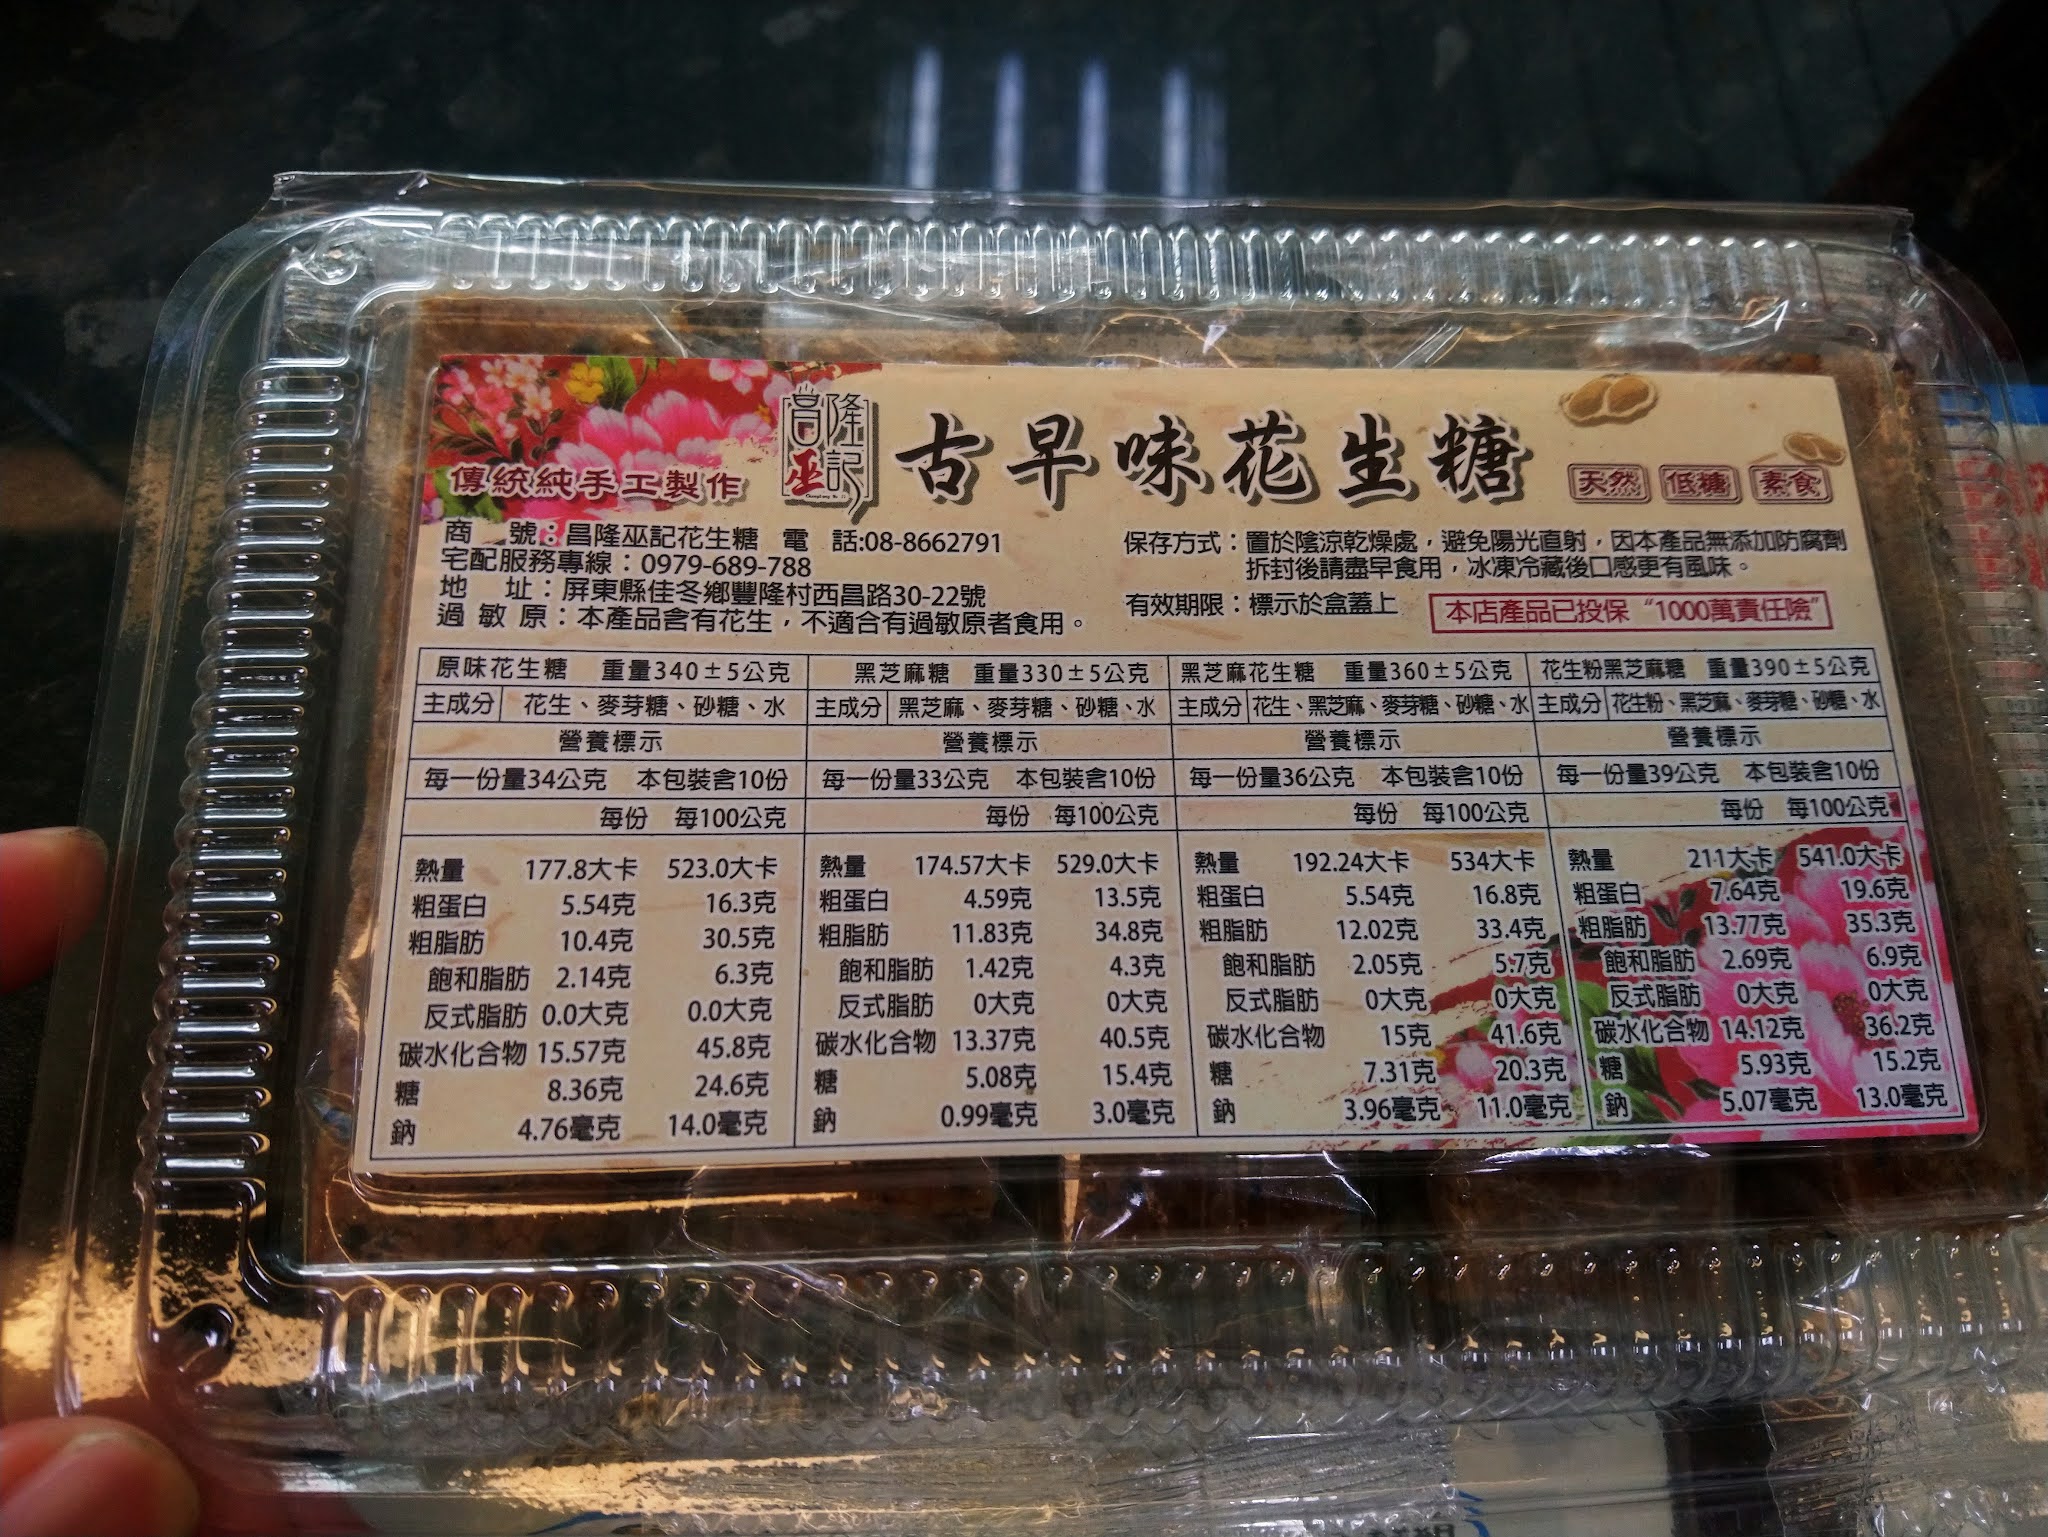 昌隆
巫記
古早味花生糖
傳統純手工製作
天然 低糖 素食
商 號：昌隆巫記花生糖 電 話:08-8662791
宅配服務專線：0979-689-788
地 址：屏東縣佳冬鄉豐隆村西昌路30-22號
過敏原：本產品含有花生，不適合有過敏原者食用。
保存方式：置於陰涼乾燥處，避免陽光直射，因本產品無添加防腐劑
拆封後請盡早食用，冰凍冷藏後口感更有風味。
有效期限：標示於盒蓋上
本店產品已投保“1000萬責任險”
原味花生糖 重量340±5公克
主成分 花生、麥芽糖、砂糖、水
營養標示
每一份量34公克 本包裝含10份
每份 每100公克
熱量 177.8大卡 523.0大卡
粗蛋白 5.54克 16.3克
粗脂肪 10.4克 30.5克
飽和脂肪 2.14克 6.3克
反式脂肪 0.0大克 0.0大克
碳水化合物 15.57克 45.8克
糖 8.36克 24.6克
鈉 4.76毫克 14.0毫克
黑芝麻糖 重量330±5公克
主成分 黑芝麻、麥芽糖、砂糖、水
營養標示
每一份量33公克 本包裝含10份
每份 每100公克
熱量 174.57大卡 529.0大卡
粗蛋白 4.59克 13.5克
粗脂肪 11.83克 34.8克
飽和脂肪 1.42克 4.3克
反式脂肪 0大克 0大克
碳水化合物 13.37克 40.5克
糖 5.08克 15.4克
鈉 0.99毫克 3.0毫克
黑芝麻花生糖 重量360±5公克
主成分 花生、黑芝麻、麥芽糖、砂糖、水
營養標示
每一份量36公克 本包裝含10份
每份 每100公克
熱量 192.24大卡 534大卡
粗蛋白 5.54克 16.8克
粗脂肪 12.02克 33.4克
飽和脂肪 2.05克 5.7克
反式脂肪 0大克 0大克
碳水化合物 15克 41.6克
糖 7.31克 20.3克
鈉 3.96毫克 11.0毫克
花生粉黑芝麻糖 重量390±5公克
主成分 花生粉、黑芝麻、麥芽糖、砂糖、水
營養標示
每一份量39公克 本包裝含10份
每份 每100公克
熱量 211大卡 541.0大卡
粗蛋白 7.64克 19.6克
粗脂肪 13.77克 35.3克
飽和脂肪 2.69克 6.9克
反式脂肪 0大克 0大克
碳水化合物 14.12克 36.2克
糖 5.93克 15.2克
鈉 5.07毫克 13.0毫克